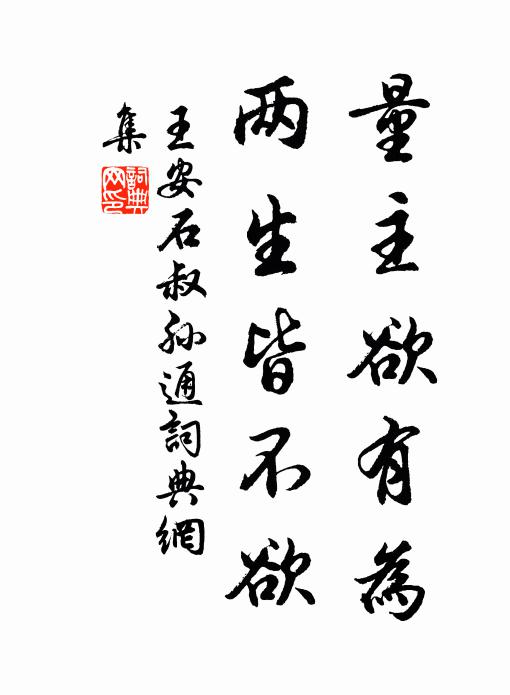 量主欲有為
两生皆不欲
王安石叔孙通詞典網
集
詞典网印